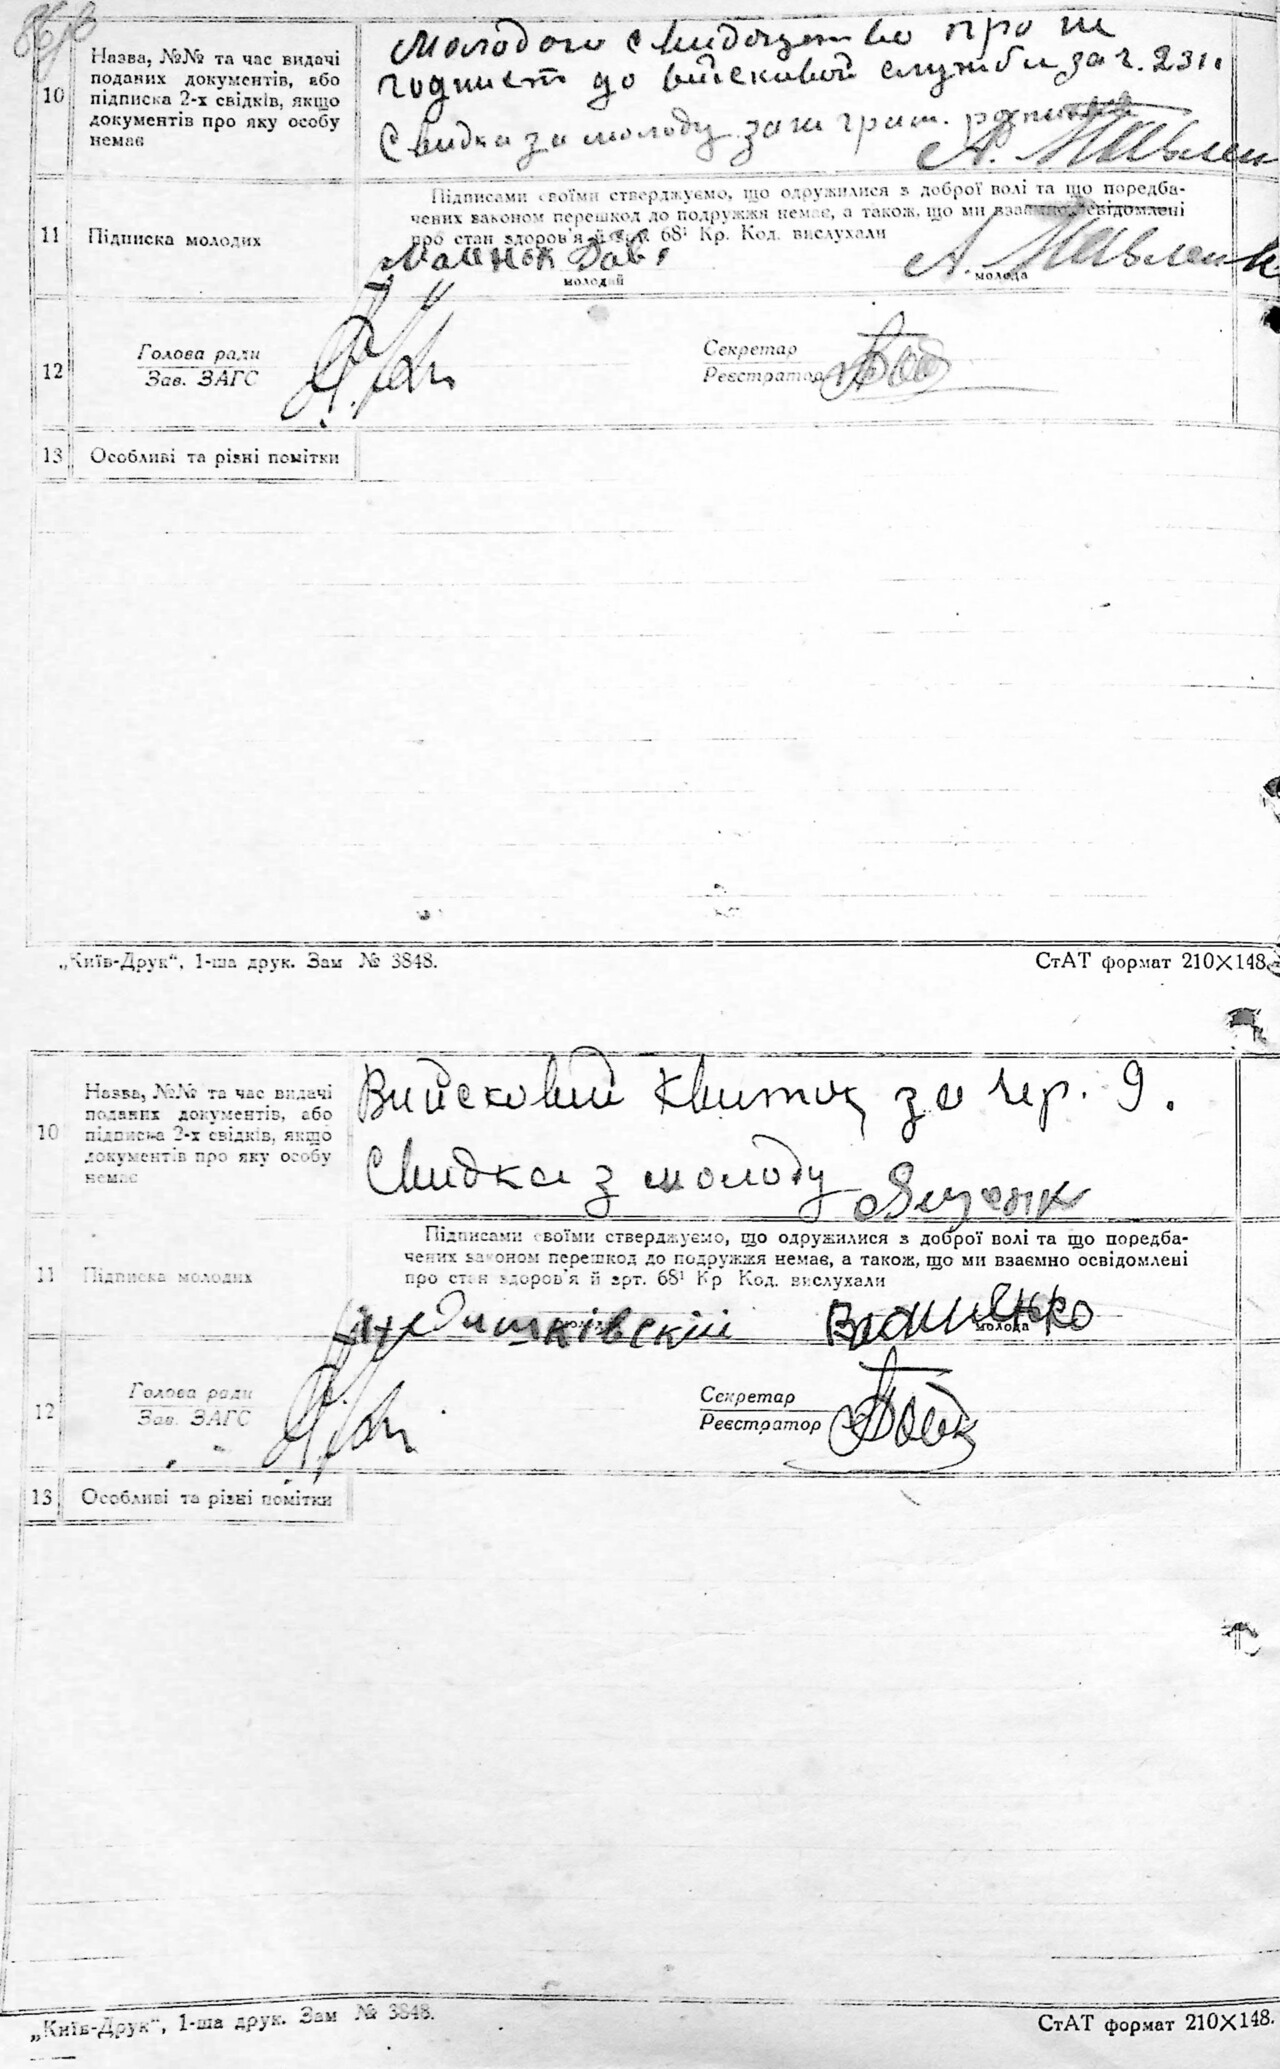 10
Назва, №№ та час видачі
поданих документів, або
підписка 2-х свідків, якщо
документів про яку особу
немає
Молодого свидоцтво про не
годнист до військовой служби за ч. 231.
Свидка за молоду
11
Підписка молодих
Підписами своїми стверджуємо, що одружилися з доброї волі та що поредба-
чених законом перешкод до подружжя немає, а також, що ми взаємно освідомлені
про стан здоров'я й арт. 68¹ Кр. Код. вислухали
молодий
молода
12
Голова ради
Зав. ЗАГС
Секретар
Реєстратор
13
Особливі та різні помітки
„Київ-Друк“, 1-ша друк. Зам № 3848.
СтАТ формат 210×148.
10
Назва, №№ та час видачі
поданих документів, або
підписка 2-х свідків, якщо
документів про яку особу
немає
Вийсковий квиток за чер. 9.
Свидка з молоду
11
Підписка молодих
Підписами своїми стверджуємо, що одружилися з доброї волі та що поредба-
чених законом перешкод до подружжя немає, а також, що ми взаємно освідомлені
про стан здоров'я й арт. 68¹ Кр Код. вислухали
молода
12
Голова ради
Зав. ЗАГС
Секретар
Реєстратор
13
Особливі та різні помітки
„Київ-Друк“, 1-ша друк. Зам № 3848.
СтАТ формат 210×148.